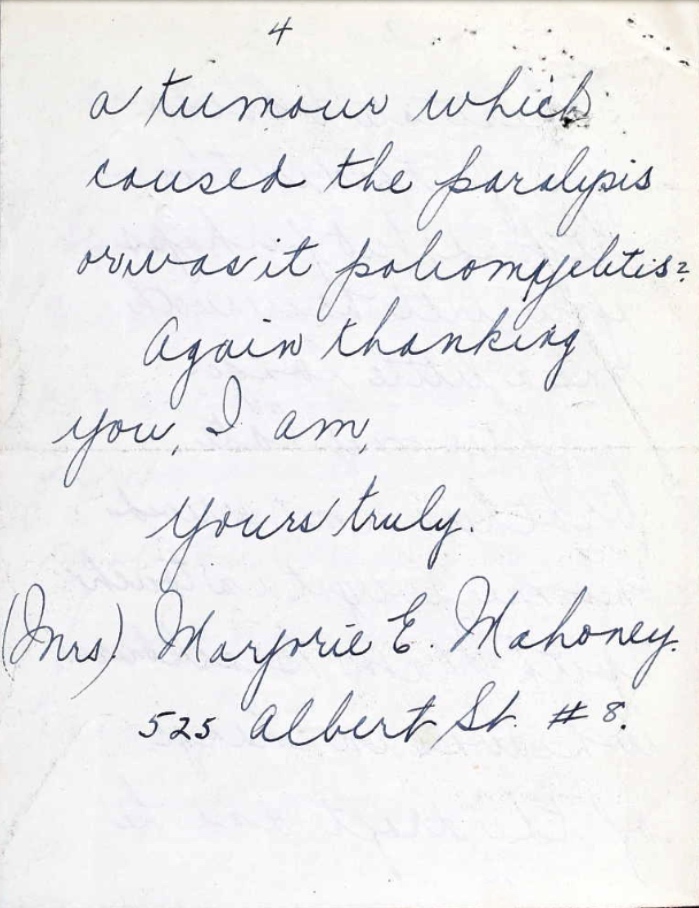 4
a tumour which
caused the paralysis
or was it poliomyelitis?
Again thanking
you, I am,
Yours truly.
(Mrs). Marjorie E. Mahoney.
525 Albert St. # 8.